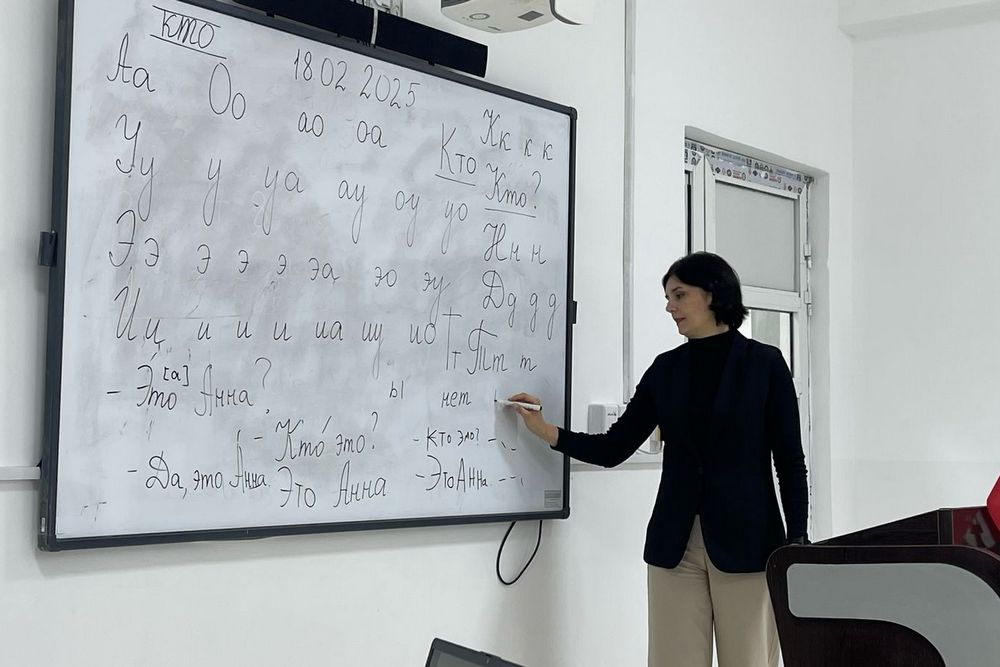 кто
Аа Оо 18.02 2025
ао оа Кк к к
Уу у уа ау оу уо Кто Кто?
Ээ э э э эа эо эу Нн н
Дд д д
Ии и и и иа иу ио Тт Тт т
- Это [а] Анна? ы нет
- Кто это? - Кто это? - . .
- Да, это Анна. Это Анна - Это Анна. - - .